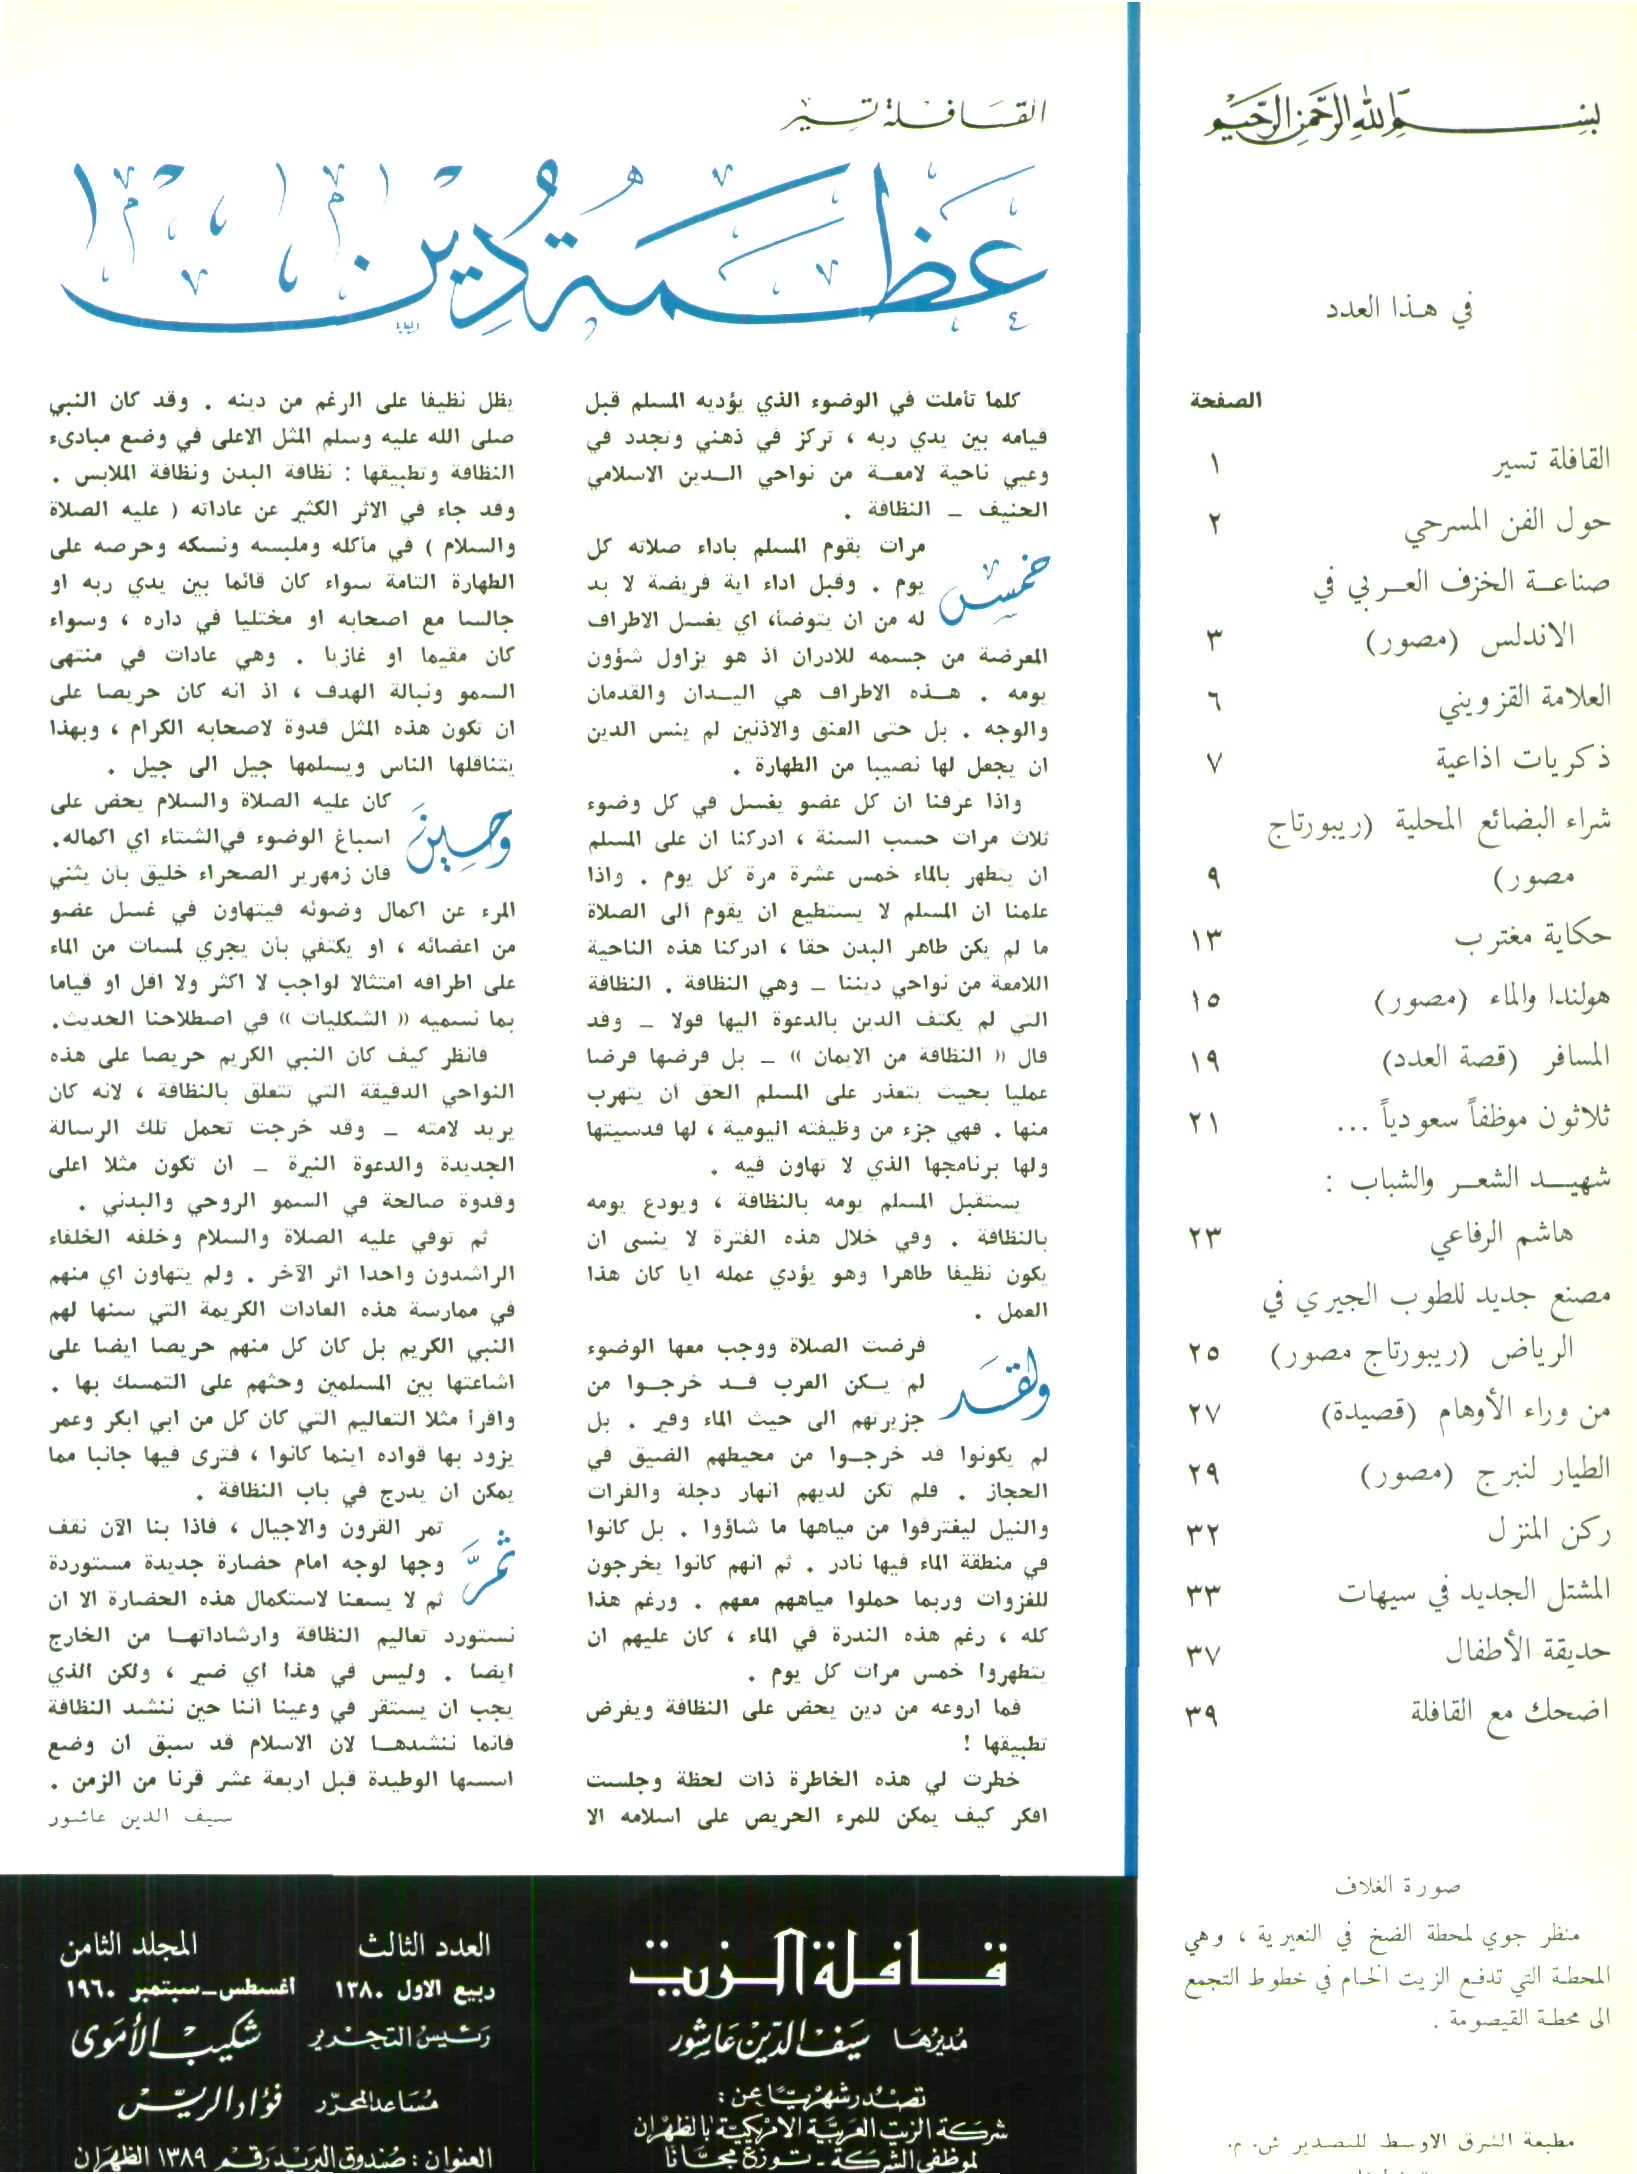 بسم الله الرحمن الرحيم
في هذا العدد
الصفحة
القافلة تسير ١
حول الفن المسرحي ٢
صناعة الخزف العربي في
الاندلس (مصور) ٣
العلامة القزويني ٦
ذكريات اذاعية ٧
شراء البضائع المحلية (ريبورتاج
مصور) ٩
حكاية مغترب ١٣
هولندا والماء (مصور) ١٥
المسافر (قصة العدد) ١٩
ثلاثون موظفاً سعودياً ... ٢١
شهيد الشعر والشباب :
هاشم الرفاعي ٢٣
مصنع جديد للطوب الجيري في
الرياض (ريبورتاج مصور) ٢٥
من وراء الأوهام (قصيدة) ٢٧
الطيار لنبرج (مصور) ٢٩
ركن المنزل ٣٢
المشتل الجديد في سيهات ٣٣
حديقة الأطفال ٣٧
اضحك مع القافلة ٣٩
صورة الغلاف
منظر جوي لمحطة الضخ في النعيرية ، وهي
المحطة التي تدفع الزيت الخام في خطوط التجمع
الى محطة القيصومة .
مطبعة الشرق الاوسط للتصدير ش. م.
القافلة تسير
عظمة دين
كلما تأملت في الوضوء الذي يؤديه المسلم قبل
قيامه بين يدي ربه ، تركز في ذهني وتجدد في
وعيي ناحية لامعة من نواحي الدين الاسلامي
الحنيف – النظافة .
خمس مرات يقوم المسلم باداء صلاته كل
يوم . وقبل اداء اية فريضة لا بد
له من ان يتوضأ، اي يغسل الاطراف
المعرضة من جسمه للادران اذ هو يزاول شؤون
يومه . هذه الاطراف هي اليدان والقدمان
والوجه . بل حتى العنق والاذنين لم ينس الدين
ان يجعل لها نصيبا من الطهارة .
واذا عرفنا ان كل عضو يغسل في كل وضوء
ثلاث مرات حسب السنة ، ادركنا ان على المسلم
ان يتطهر بالماء خمس عشرة مرة كل يوم . واذا
علمنا ان المسلم لا يستطيع ان يقوم الى الصلاة
ما لم يكن طاهر البدن حقا ، ادركنا هذه الناحية
اللامعة من نواحي ديننا – وهي النظافة . النظافة
التي لم يكتف الدين بالدعوة اليها قولا – وقد
قال « النظافة من الايمان » – بل فرضها فرضا
عمليا بحيث يتعذر على المسلم الحق ان يتهرب
منها . فهي جزء من وظيفته اليومية ، لها قدسيتها
ولها برنامجها الذي لا تهاون فيه .
يستقبل المسلم يومه بالنظافة ، ويودع يومه
بالنظافة . وفي خلال هذه الفترة لا ينسى ان
يكون نظيفا طاهرا وهو يؤدي عمله ايا كان هذا
العمل .
ولقد فرضت الصلاة ووجب معها الوضوء
لم يكن العرب قد خرجوا من
جزيرتهم الى حيث الماء وفير . بل
لم يكونوا قد خرجوا من محيطهم الضيق في
الحجاز . فلم تكن لديهم انهار دجلة والفرات
والنيل ليغترفوا من مياهها ما شاؤوا . بل كانوا
في منطقة الماء فيها نادر . ثم انهم كانوا يخرجون
للغزوات وربما حملوا مياههم معهم . ورغم هذا
كله ، رغم هذه الندرة في الماء ، كان عليهم ان
يتطهروا خمس مرات كل يوم .
فما اروعه من دين يحض على النظافة ويفرض
تطبيقها !
خطرت لي هذه الخاطرة ذات لحظة وجلست
افكر كيف يمكن للمرء الحريص على اسلامه الا
يظل نظيفا على الرغم من دينه . وقد كان النبي
صلى الله عليه وسلم المثل الاعلى في وضع مبادىء
النظافة وتطبيقها : نظافة البدن ونظافة الملابس .
وقد جاء في الاثر الكثير عن عاداته ( عليه الصلاة
والسلام ) في ماكله وملبسه ونسكه وحرصه على
الطهارة التامة سواء كان قائما بين يدي ربه او
جالسا مع اصحابه او مختليا في داره ، وسواء
كان مقيما او غازيا . وهي عادات في منتهى
السمو ونبالة الهدف ، اذ انه كان حريصا على
ان تكون هذه المثل قدوة لاصحابه الكرام ، وبهذا
يتناقلها الناس ويسلمها جيل الى جيل .
وحين كان عليه الصلاة والسلام يحض على
اسباغ الوضوء في الشتاء اي اكماله.
فان زمهرير الصحراء خليق بان يثني
المرء عن اكمال وضوئه فيتهاون في غسل عضو
من اعضائه ، او يكتفي بأن يجري لمسات من الماء
على اطرافه امتثالا لواجب لا اكثر ولا اقل او قياما
بما نسميه « الشكليات » في اصطلاحنا الحديث.
فانظر كيف كان النبي الكريم حريصا على هذه
النواحي الدقيقة التي تتعلق بالنظافة ، لانه كان
يريد لامته – وقد خرجت تحمل تلك الرسالة
الجديدة والدعوة النيرة – ان تكون مثلا اعلى
وقدوة صالحة في السمو الروحي والبدني .
ثم توفي عليه الصلاة والسلام وخلفه الخلفاء
الراشدون واحدا اثر الآخر . ولم يتهاون اي منهم
في ممارسة هذه العادات الكريمة التي سنها لهم
النبي الكريم بل كان كل منهم حريصا ايضا على
اشاعتها بين المسلمين وحثهم على التمسك بها .
واقرأ مثلا التعاليم التي كان كل من ابي ابكر وعمر
يزود بها قواده اينما كانوا ، فترى فيها جانبا مما
يمكن ان يدرج في باب النظافة .
ثمَّ تمر القرون والاجيال ، فاذا بنا الآن نقف
وجها لوجه امام حضارة جديدة مستوردة
ثم لا يسعنا لاستكمال هذه الحضارة الا ان
نستورد تعاليم النظافة وارشاداتها من الخارج
ايضا . وليس في هذا اي ضير ، ولكن الذي
يجب ان يستقر في وعينا اننا حين ننشد النظافة
فانما ننشدها لان الاسلام قد سبق ان وضع
اسسها الوطيدة قبل اربعة عشر قرنا من الزمن .
سيف الدين عاشور
قافلة الزيت
مديرها سيف الدين عاشور
تصدر شهريًا عن:
شركة الزيت العربية الامريكية بالظهران
لموظفي الشركة - توزع مجانا
العدد الثالث المجلد الثامن
ربيع الاول ١٣٨٠ اغسطس-سبتمبر ١٩٦٠
رئيس التحرير شكيب الأموى
مساعد المحرر فؤاد الريس
العنوان : صندوق البريد رقم ١٣٨٩ الظهران